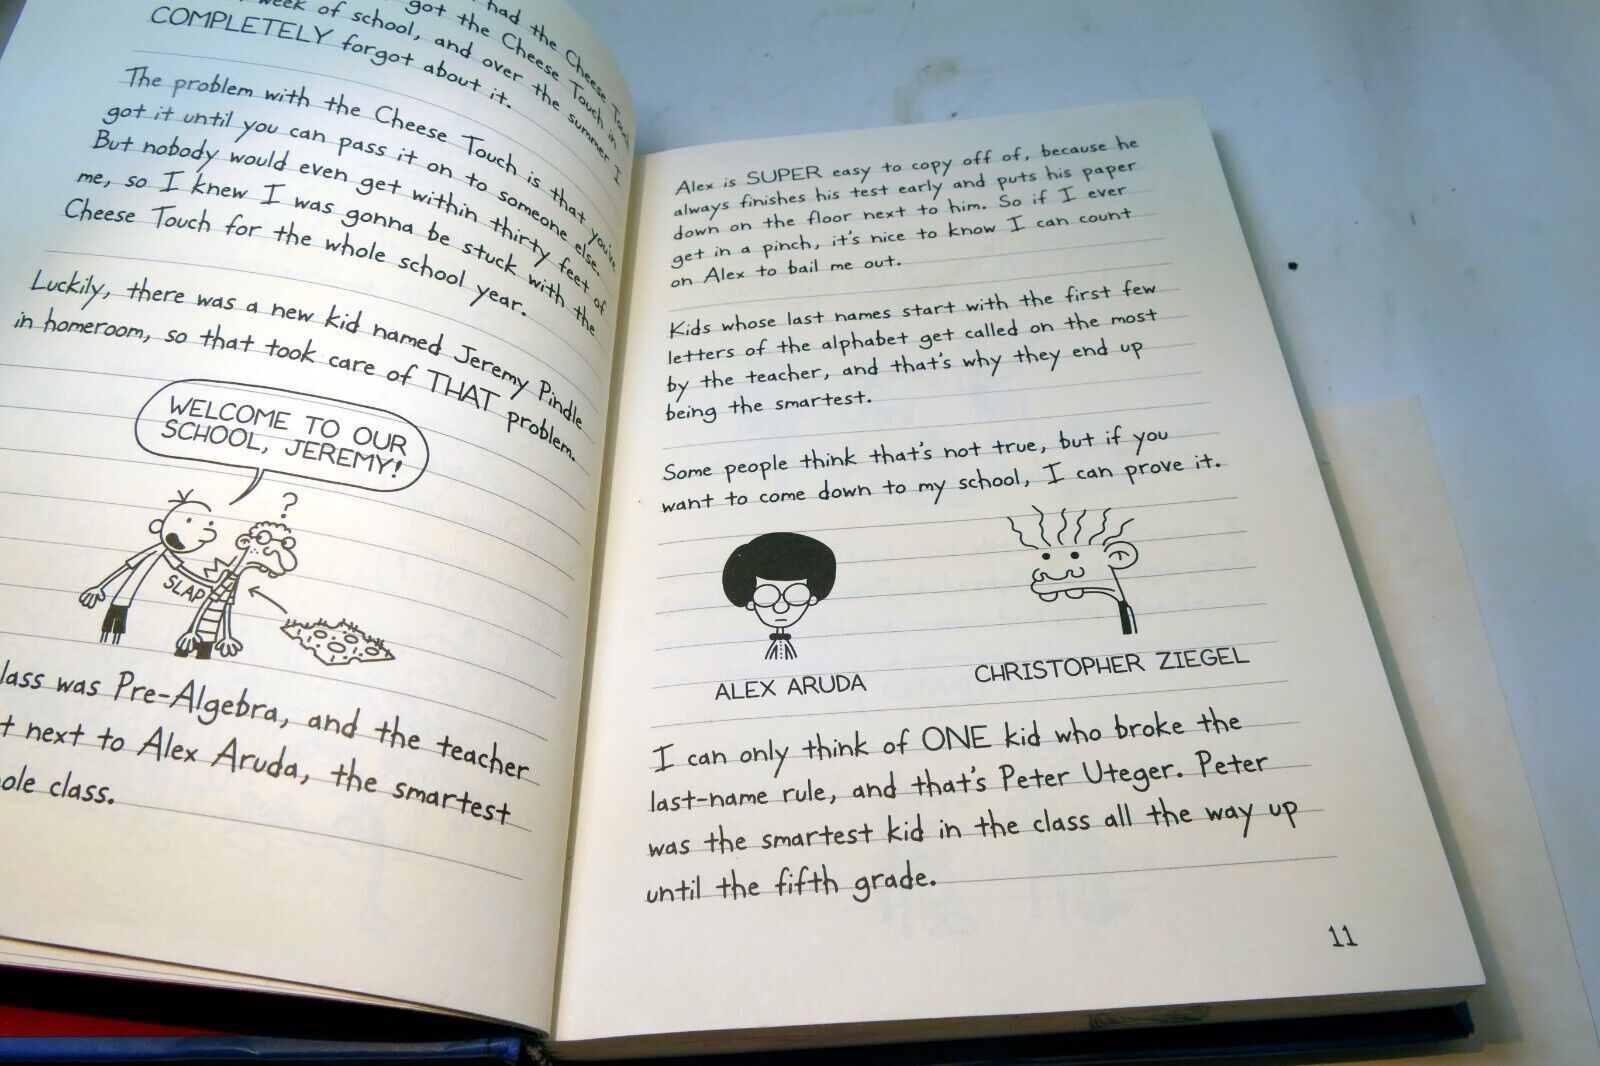 had the Cheese Touch
got the Cheese Touch in
week of school, and over the summer I
COMPLETELY forgot about it.
The problem with the Cheese Touch is that you've
got it until you can pass it on to someone else.
But nobody would even get within thirty feet of
me, so I knew I was gonna be stuck with the
Cheese Touch for the whole school year.
Luckily, there was a new kid named Jeremy Pindle
in homeroom, so that took care of THAT problem.
WELCOME TO OUR
SCHOOL, JEREMY!
?
SLAP
lass was Pre-Algebra, and the teacher
t next to Alex Aruda, the smartest
ole class.
Alex is SUPER easy to copy off of, because he
always finishes his test early and puts his paper
down on the floor next to him. So if I ever
get in a pinch, it's nice to know I can count
on Alex to bail me out.
Kids whose last names start with the first few
letters of the alphabet get called on the most
by the teacher, and that's why they end up
being the smartest.
Some people think that's not true, but if you
want to come down to my school, I can prove it.
ALEX ARUDA
CHRISTOPHER ZIEGEL
I can only think of ONE kid who broke the
last-name rule, and that's Peter Uteger. Peter
was the smartest kid in the class all the way up
until the fifth grade.
11